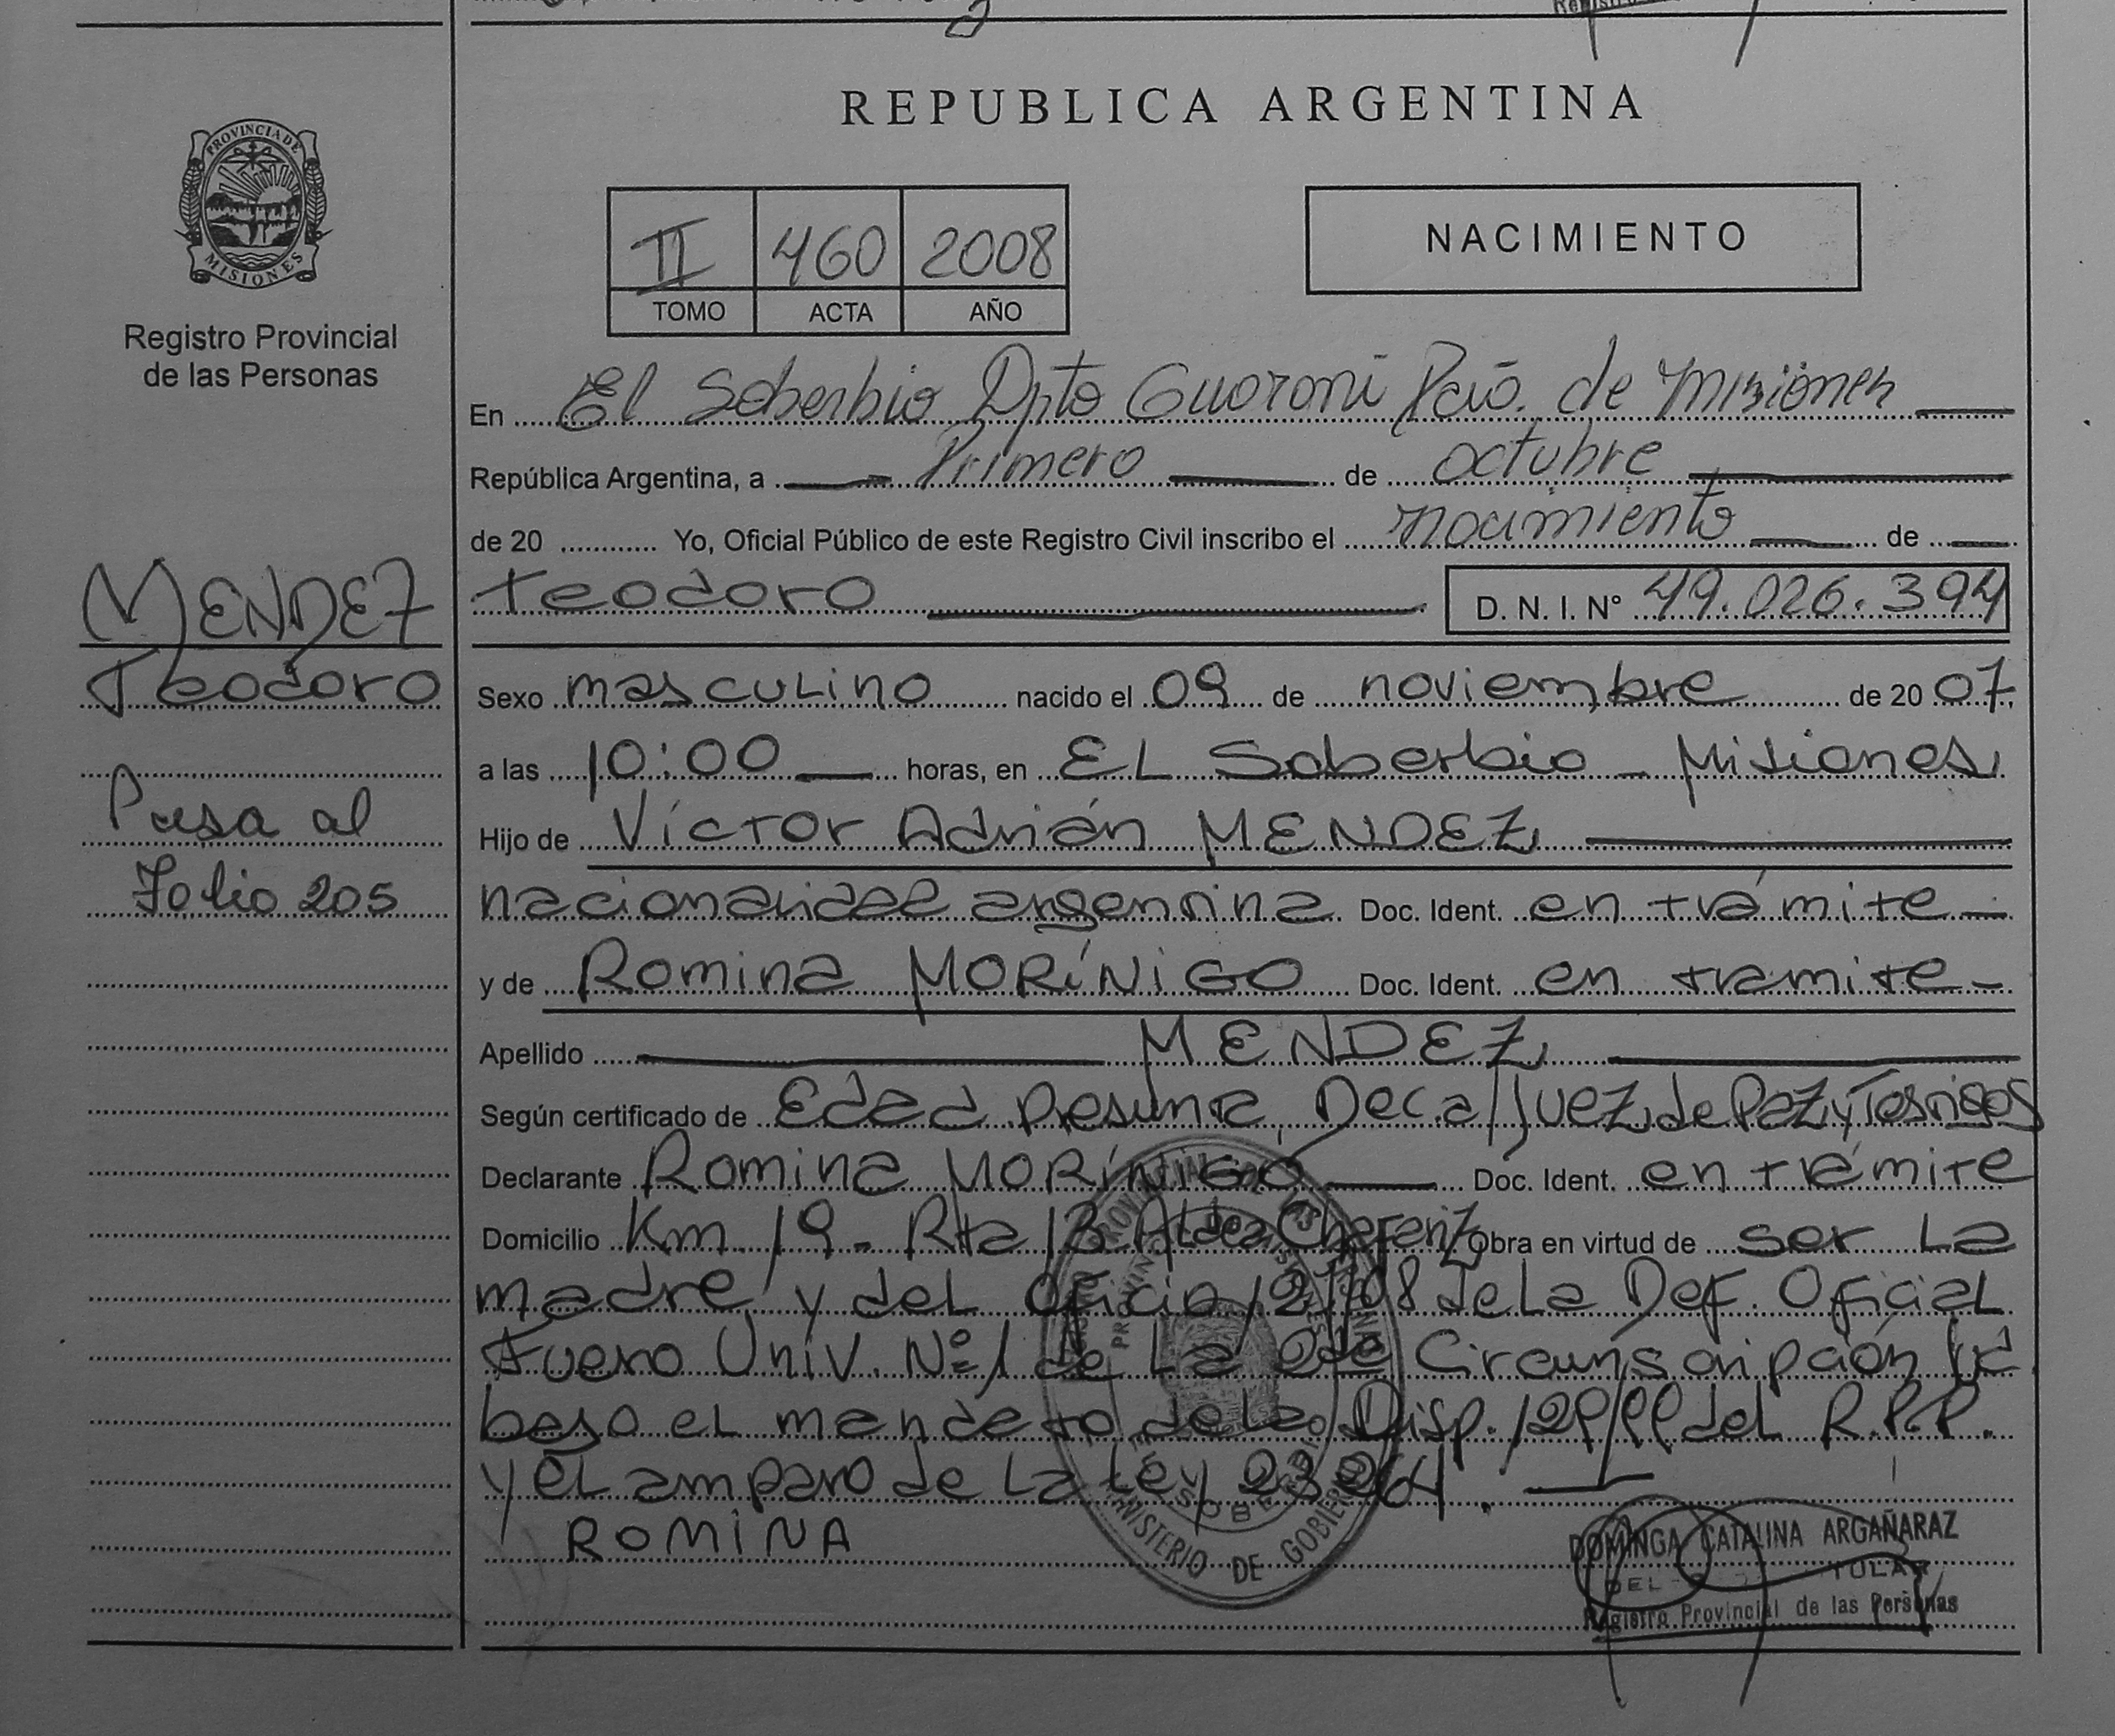 REPUBLICA ARGENTINA
PROVINCIA DE
MISIONES
Registro Provincial
de las Personas
II 460 2008
TOMO ACTA AÑO
NACIMIENTO
En El Soberbio Dpto Guaraní Pcia. de Misiones
República Argentina, a Primero de octubre
de 20 Yo, Oficial Público de este Registro Civil inscribo el nacimiento de
Teodoro D. N. I. N° 49.026.394
MENDEZ
Teodoro
Pasa al
Folio 205
Sexo masculino nacido el 09 de noviembre de 20 07,
a las 10:00 horas, en EL Soberbio - Misiones,
Hijo de Víctor Adrián MENDEZ,
nacionalidad argentina Doc. Ident. en trámite
y de Romina MORÍNIGO Doc. Ident. en tramite
Apellido MENDEZ,
Según certificado de Edad Presunta, Dec. a/Juez de Paz y Testigos
Declarante Romina MORÍNIGO Doc. Ident. en trámite
Domicilio Km. 19 - Rta 13 Aldea Chafariz Obra en virtud de ser la
madre y del oficio 121/08 de La Def. Oficial
Fuero Univ. Nº 1 de La 2da Circunscripción
bajo el mandato de la Disp. 129/99 del R.P.P.
y el amparo de La Ley 23264.
ROMINA
MINISTERIO DE GOBIERNO
DOMINGA CATALINA ARGAÑARAZ
Registro Provincial de las Personas